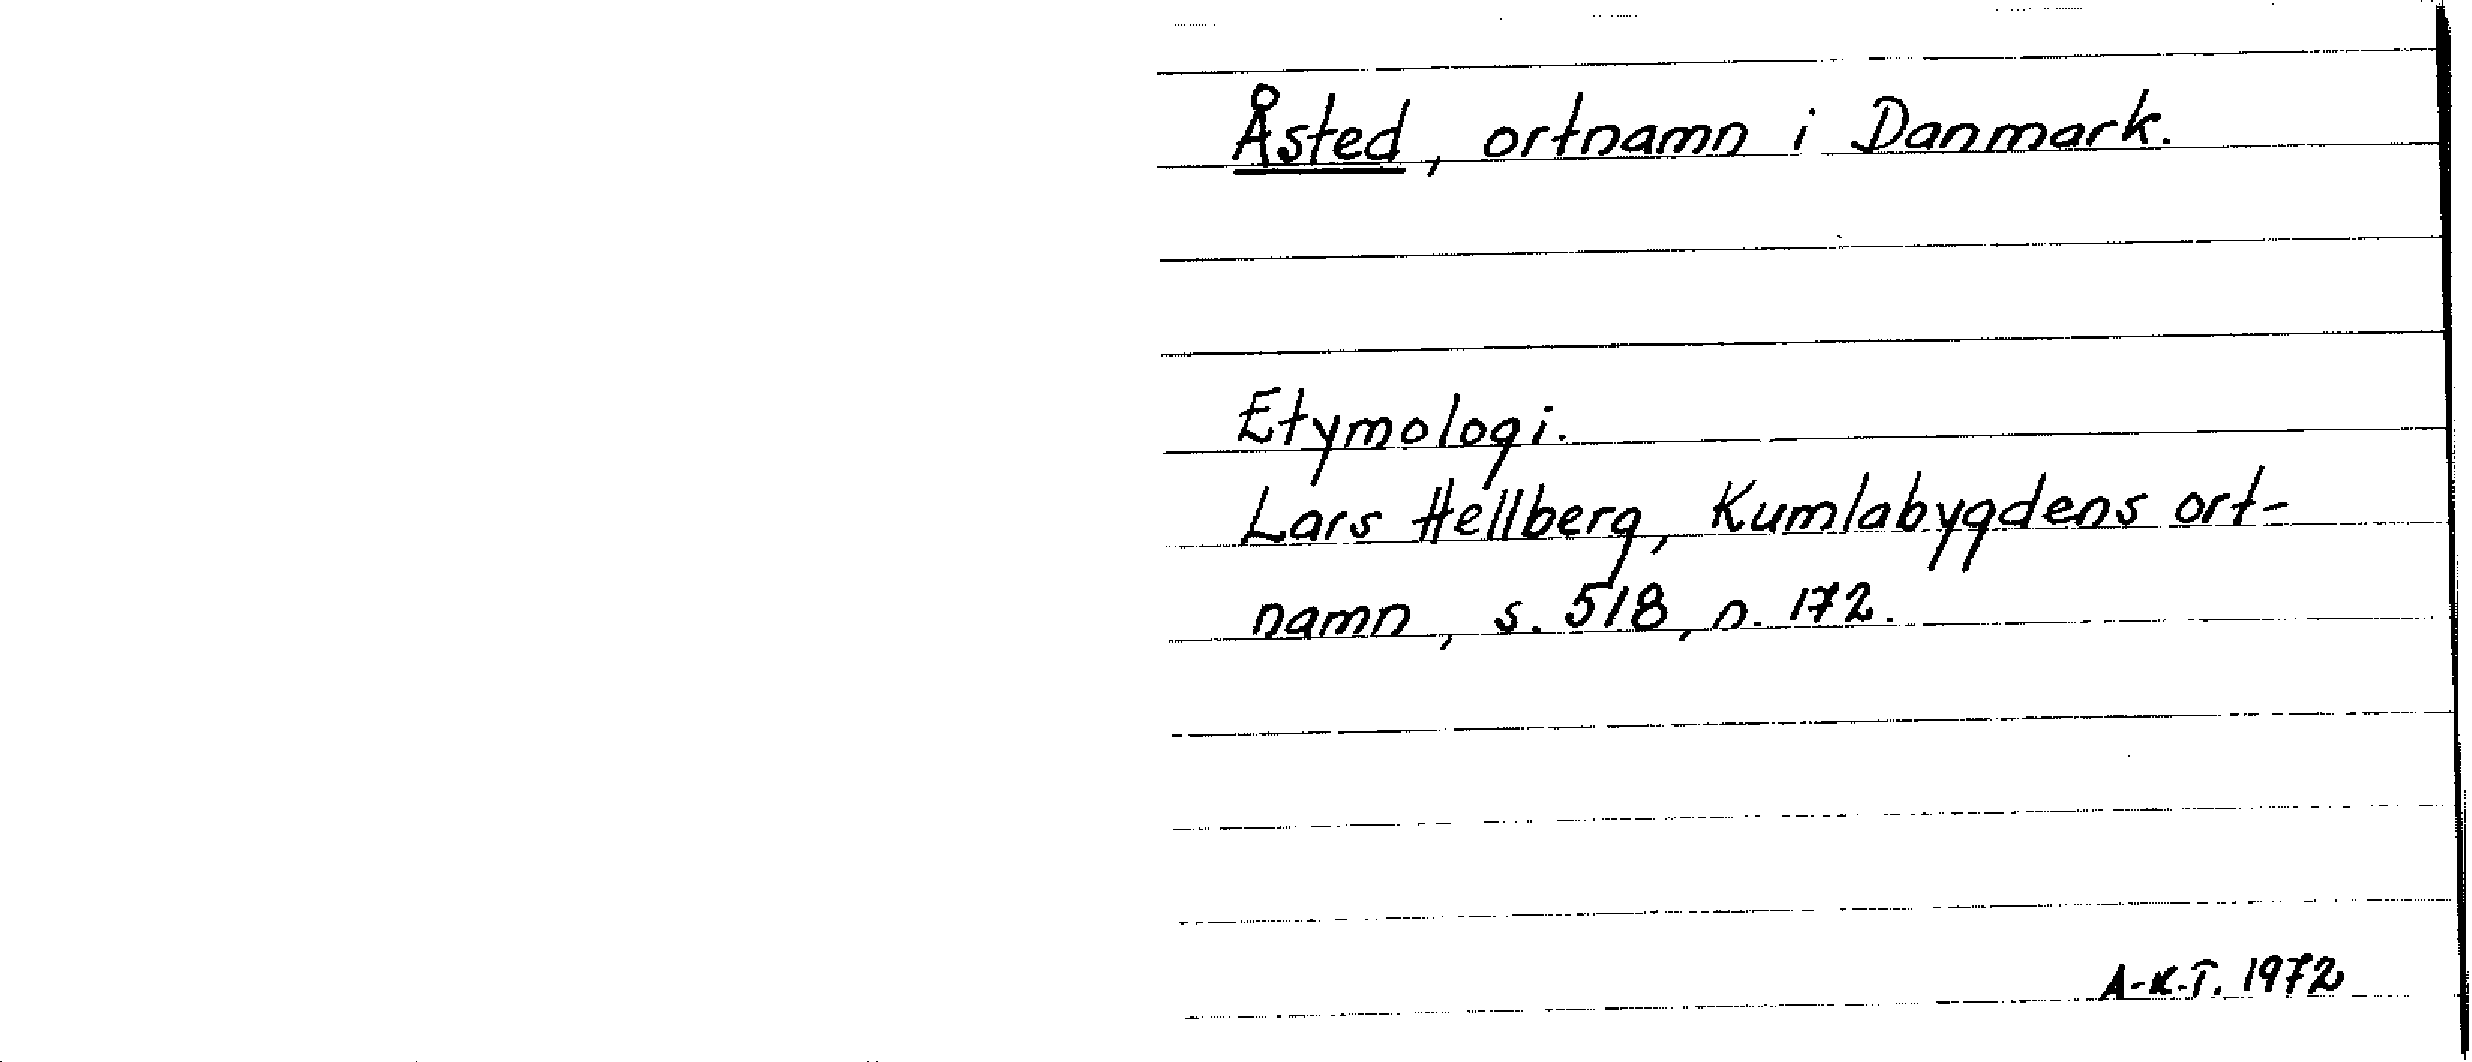 Åsted, ortnamn i Danmark.
Etymologi.
Lars Hellberg, Kumlabygdens ort-
namn, s. 518, n. 172.
A-K.T. 1972